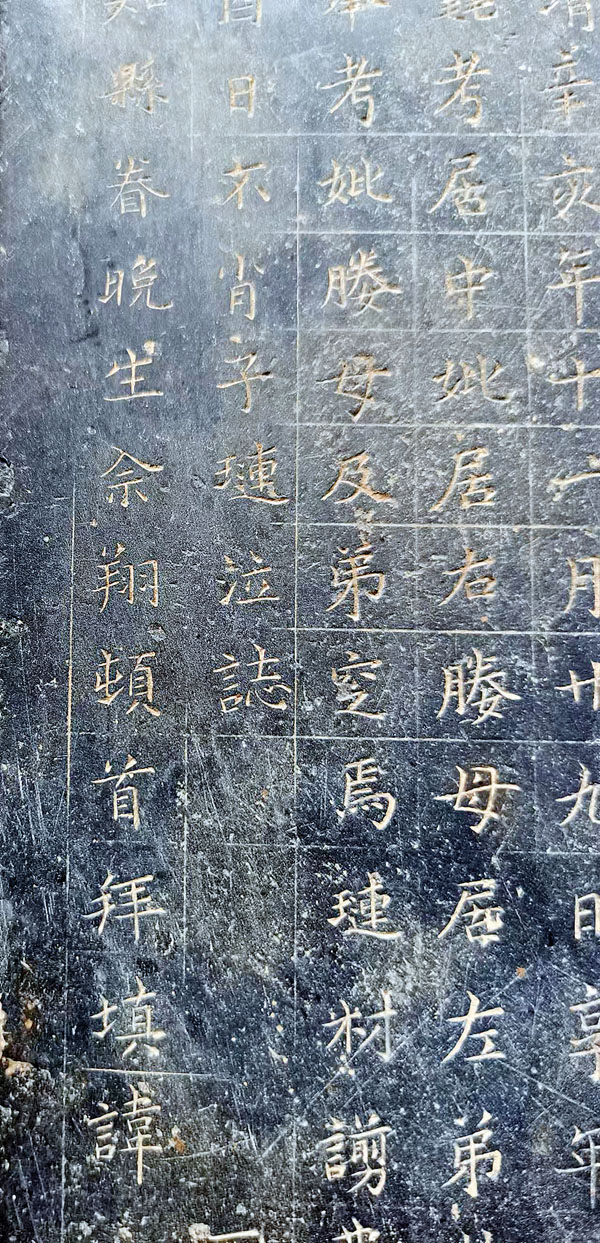 辛亥年十二月廿九日享年
考居中妣居右媵母居左弟
考妣媵母及弟窆焉璉材謭
日不肖子璉泣誌
知縣眷晚生佘翔頓首拜填諱